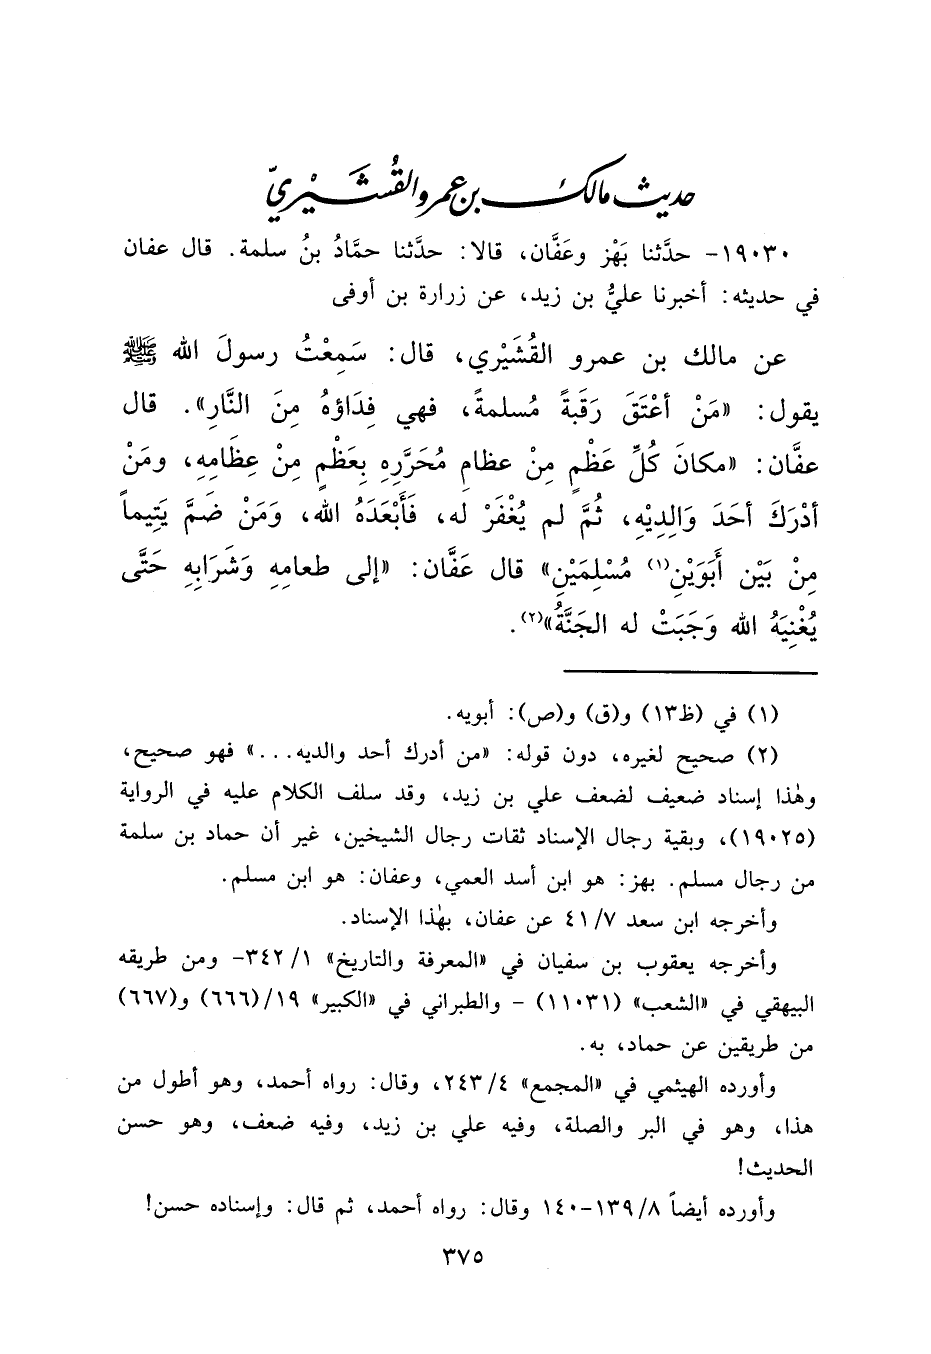 حديث مالك بن عمرو القُشَيْريّ
١٩٠٣٠- حدَّثنا بَهْز وعَفَّان، قالا: حدَّثنا حمَّادُ بنُ سلمة. قال عفان
في حديثه: أخبرنا عليُّ بن زيد، عن زرارة بن أوفى
عن مالك بن عمرو القُشَيْري، قال: سَمِعْتُ رسولَ الله ﷺ
يقول: «مَنْ أعْتَقَ رَقَبَةً مُسلمةً، فهي فِدَاؤهُ مِنَ النَّارِ». قال
عفَّان: «مكانَ كُلِّ عَظْمٍ مِنْ عظامِ مُحَرَّرِه بِعَظْمٍ مِنْ عِظَامِهِ، ومَنْ
أدْرَكَ أحَدَ وَالِدِيْهِ، ثُمَّ لم يُغْفَرْ له، فَأَبْعَدَهُ الله، وَمَنْ ضَمَّ يَتِيماً
مِنْ بَيْن أَبَوَيْنِ(١) مُسْلِمَيْنِ» قال عَفَّان: «إلى طعامِهِ وَشَرَابِهِ حَتَّى
يُغْنِيَهُ الله وَجَبَتْ له الجَنَّةُ»(٢).
(١) في (ظ١٣) و(ق) و(ص): أبويه.
(٢) صحيح لغيره، دون قوله: «من أدرك أحد والديه...» فهو صحيح،
وهٰذا إسناد ضعيف لضعف علي بن زيد، وقد سلف الكلام عليه في الرواية
(١٩٠٢٥)، وبقية رجال الإسناد ثقات رجال الشيخين، غير أن حماد بن سلمة
من رجال مسلم. بهز: هو ابن أسد العمي، وعفان: هو ابن مسلم.
وأخرجه ابن سعد ٧/ ٤١ عن عفان، بهٰذا الإسناد.
وأخرجه يعقوب بن سفيان في «المعرفة والتاريخ» ١/ ٣٤٢- ومن طريقه
البيهقي في «الشعب» (١١٠٣١) - والطبراني في «الكبير» ١٩/(٦٦٦) و(٦٦٧)
من طريقين عن حماد، به.
وأورده الهيثمي في «المجمع» ٤/ ٢٤٣، وقال: رواه أحمد، وهو أطول من
هذا، وهو في البر والصلة، وفيه علي بن زيد، وفيه ضعف، وهو حسن
الحديث!
وأورده أيضاً ٨/ ١٣٩-١٤٠ وقال: رواه أحمد، ثم قال: وإسناده حسن!
٣٧٥